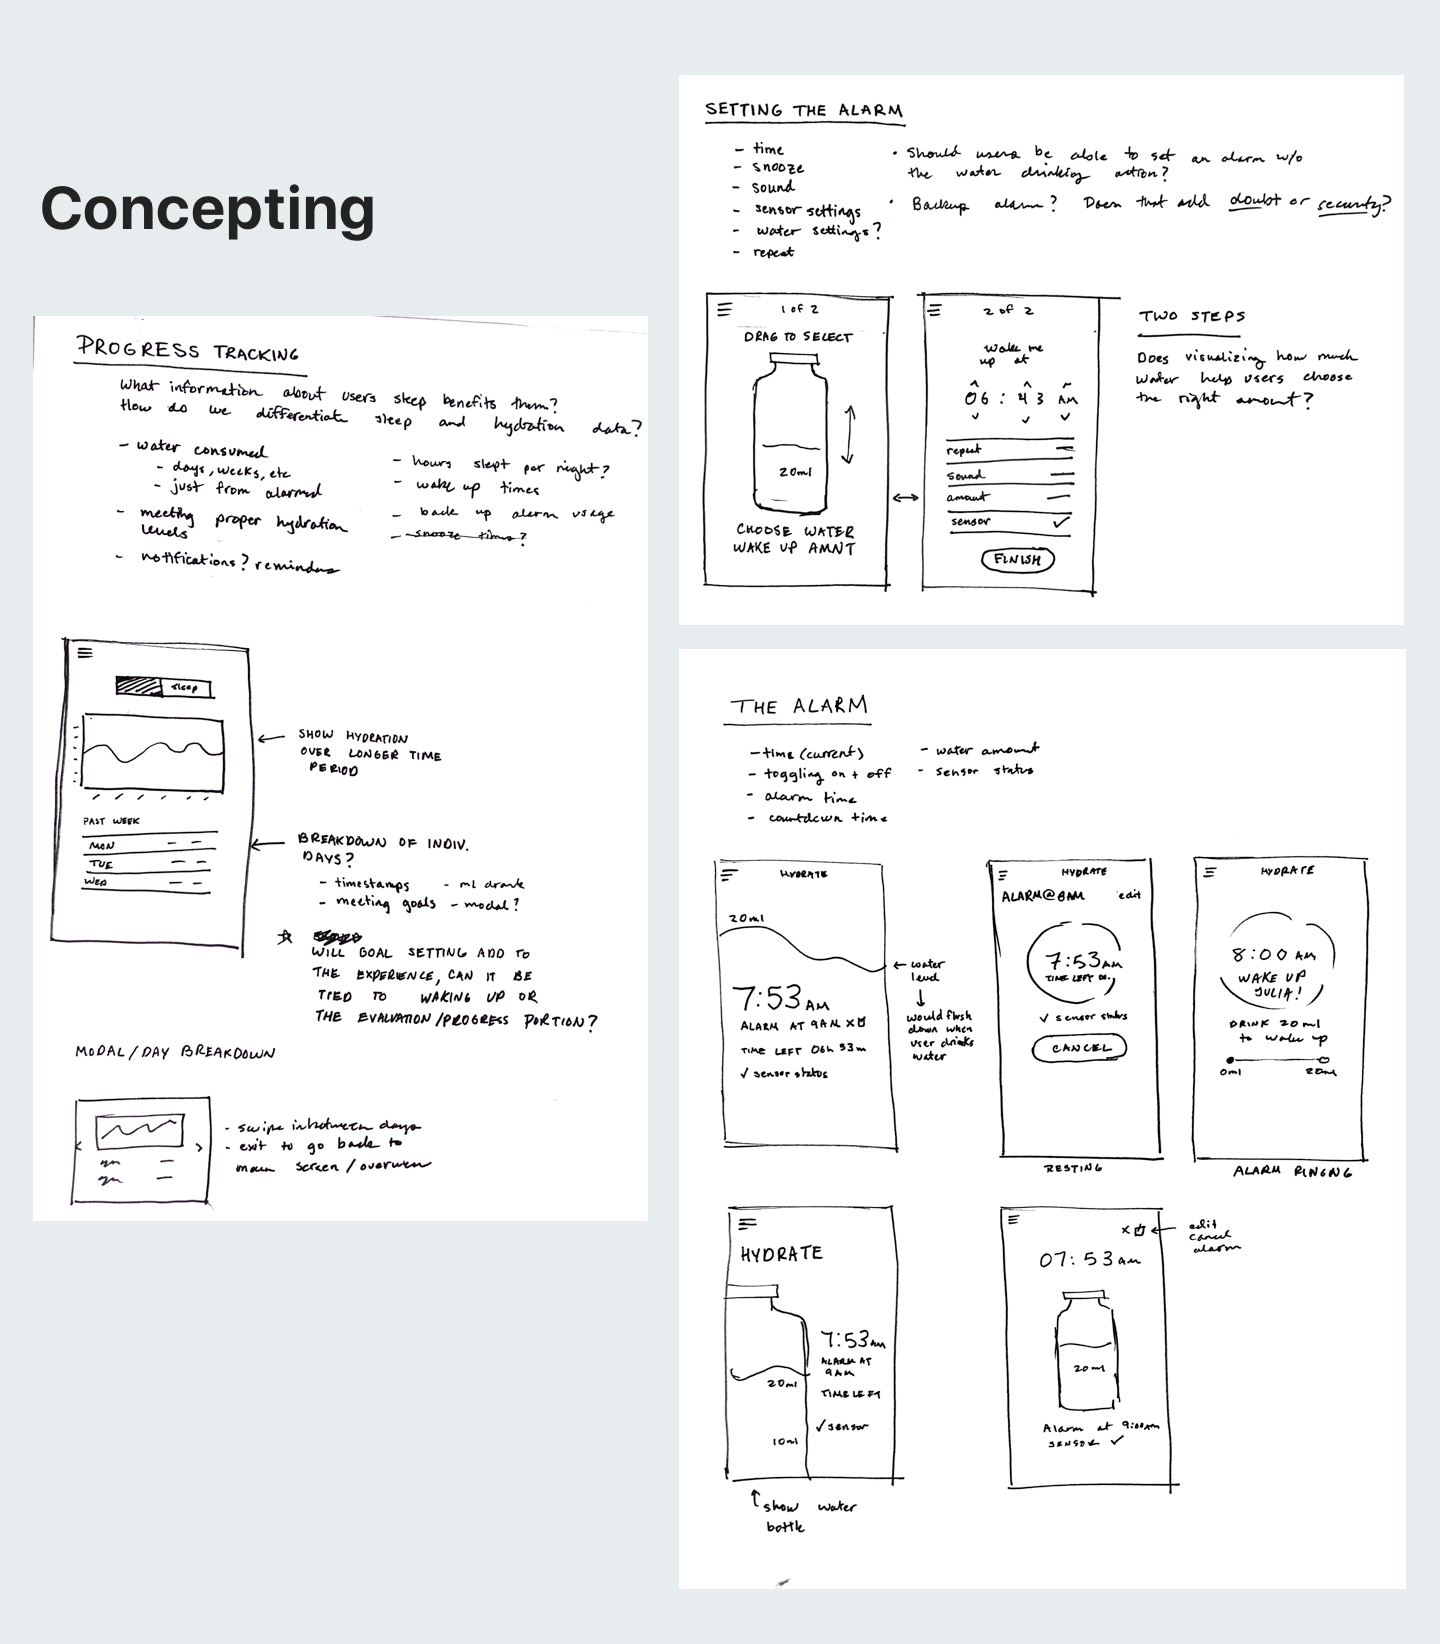 Concepting
PROGRESS TRACKING
What information about users sleep benefits them?
How do we differentiate sleep and hydration data?
- water consumed
- days, weeks, etc
- just from alarmed
- meeting proper hydration
levels
- notifications? reminders
- hours slept per night?
- wake up times
- back up alarm usage
- snooze times?
sleep
SHOW HYDRATION
OVER LONGER TIME
PERIOD
PAST WEEK
MON
TUE
WED
BREAKDOWN OF INDIV.
DAYS?
- timestamps
- meeting goals
- ml drank
- modal?
WILL GOAL SETTING ADD TO
THE EXPERIENCE, CAN IT BE
TIED TO WAKING UP OR
THE EVALUATION/PROGRESS PORTION?
MODAL/DAY BREAKDOWN
- swipe inbetween days
- exit to go back to
main screen/overview
SETTING THE ALARM
- time
- snooze
- sound
- sensor settings
- water settings?
- repeat
• Should users be able to set an alarm w/o
the water drinking action?
• Backup alarm? Does that add doubt or security?
1 of 2
DRAG TO SELECT
20ml
CHOOSE WATER
WAKE UP AMNT
2 of 2
wake me
up at
06 : 43 AM
repeat
sound
amount
sensor ✓
FINISH
TWO STEPS
Does visualizing how much
water help users choose
the right amount?
THE ALARM
- time (current)
- toggling on + off
- alarm time
- countdown time
- water amount
- sensor status
HYDRATE
20ml
7:53 AM
ALARM AT 9AM X
TIME LEFT 06h 53m
✓ sensor status
← water
level
↓
would flush
down when
user drinks
water
HYDRATE
ALARM@8AM edit
7:53AM
TIME LEFT
✓ sensor status
CANCEL
RESTING
HYDRATE
8:00 AM
WAKE UP
JULIA!
DRINK 20ml
to wake up
0ml 20ml
ALARM RINGING
HYDRATE
20ml
10ml
7:53AM
ALARM AT
9AM
TIME LEFT
✓ sensor
show water
bottle
X
edit
cancel
alarm
07:53 AM
20ml
Alarm at 9:00AM
SENSOR ✓